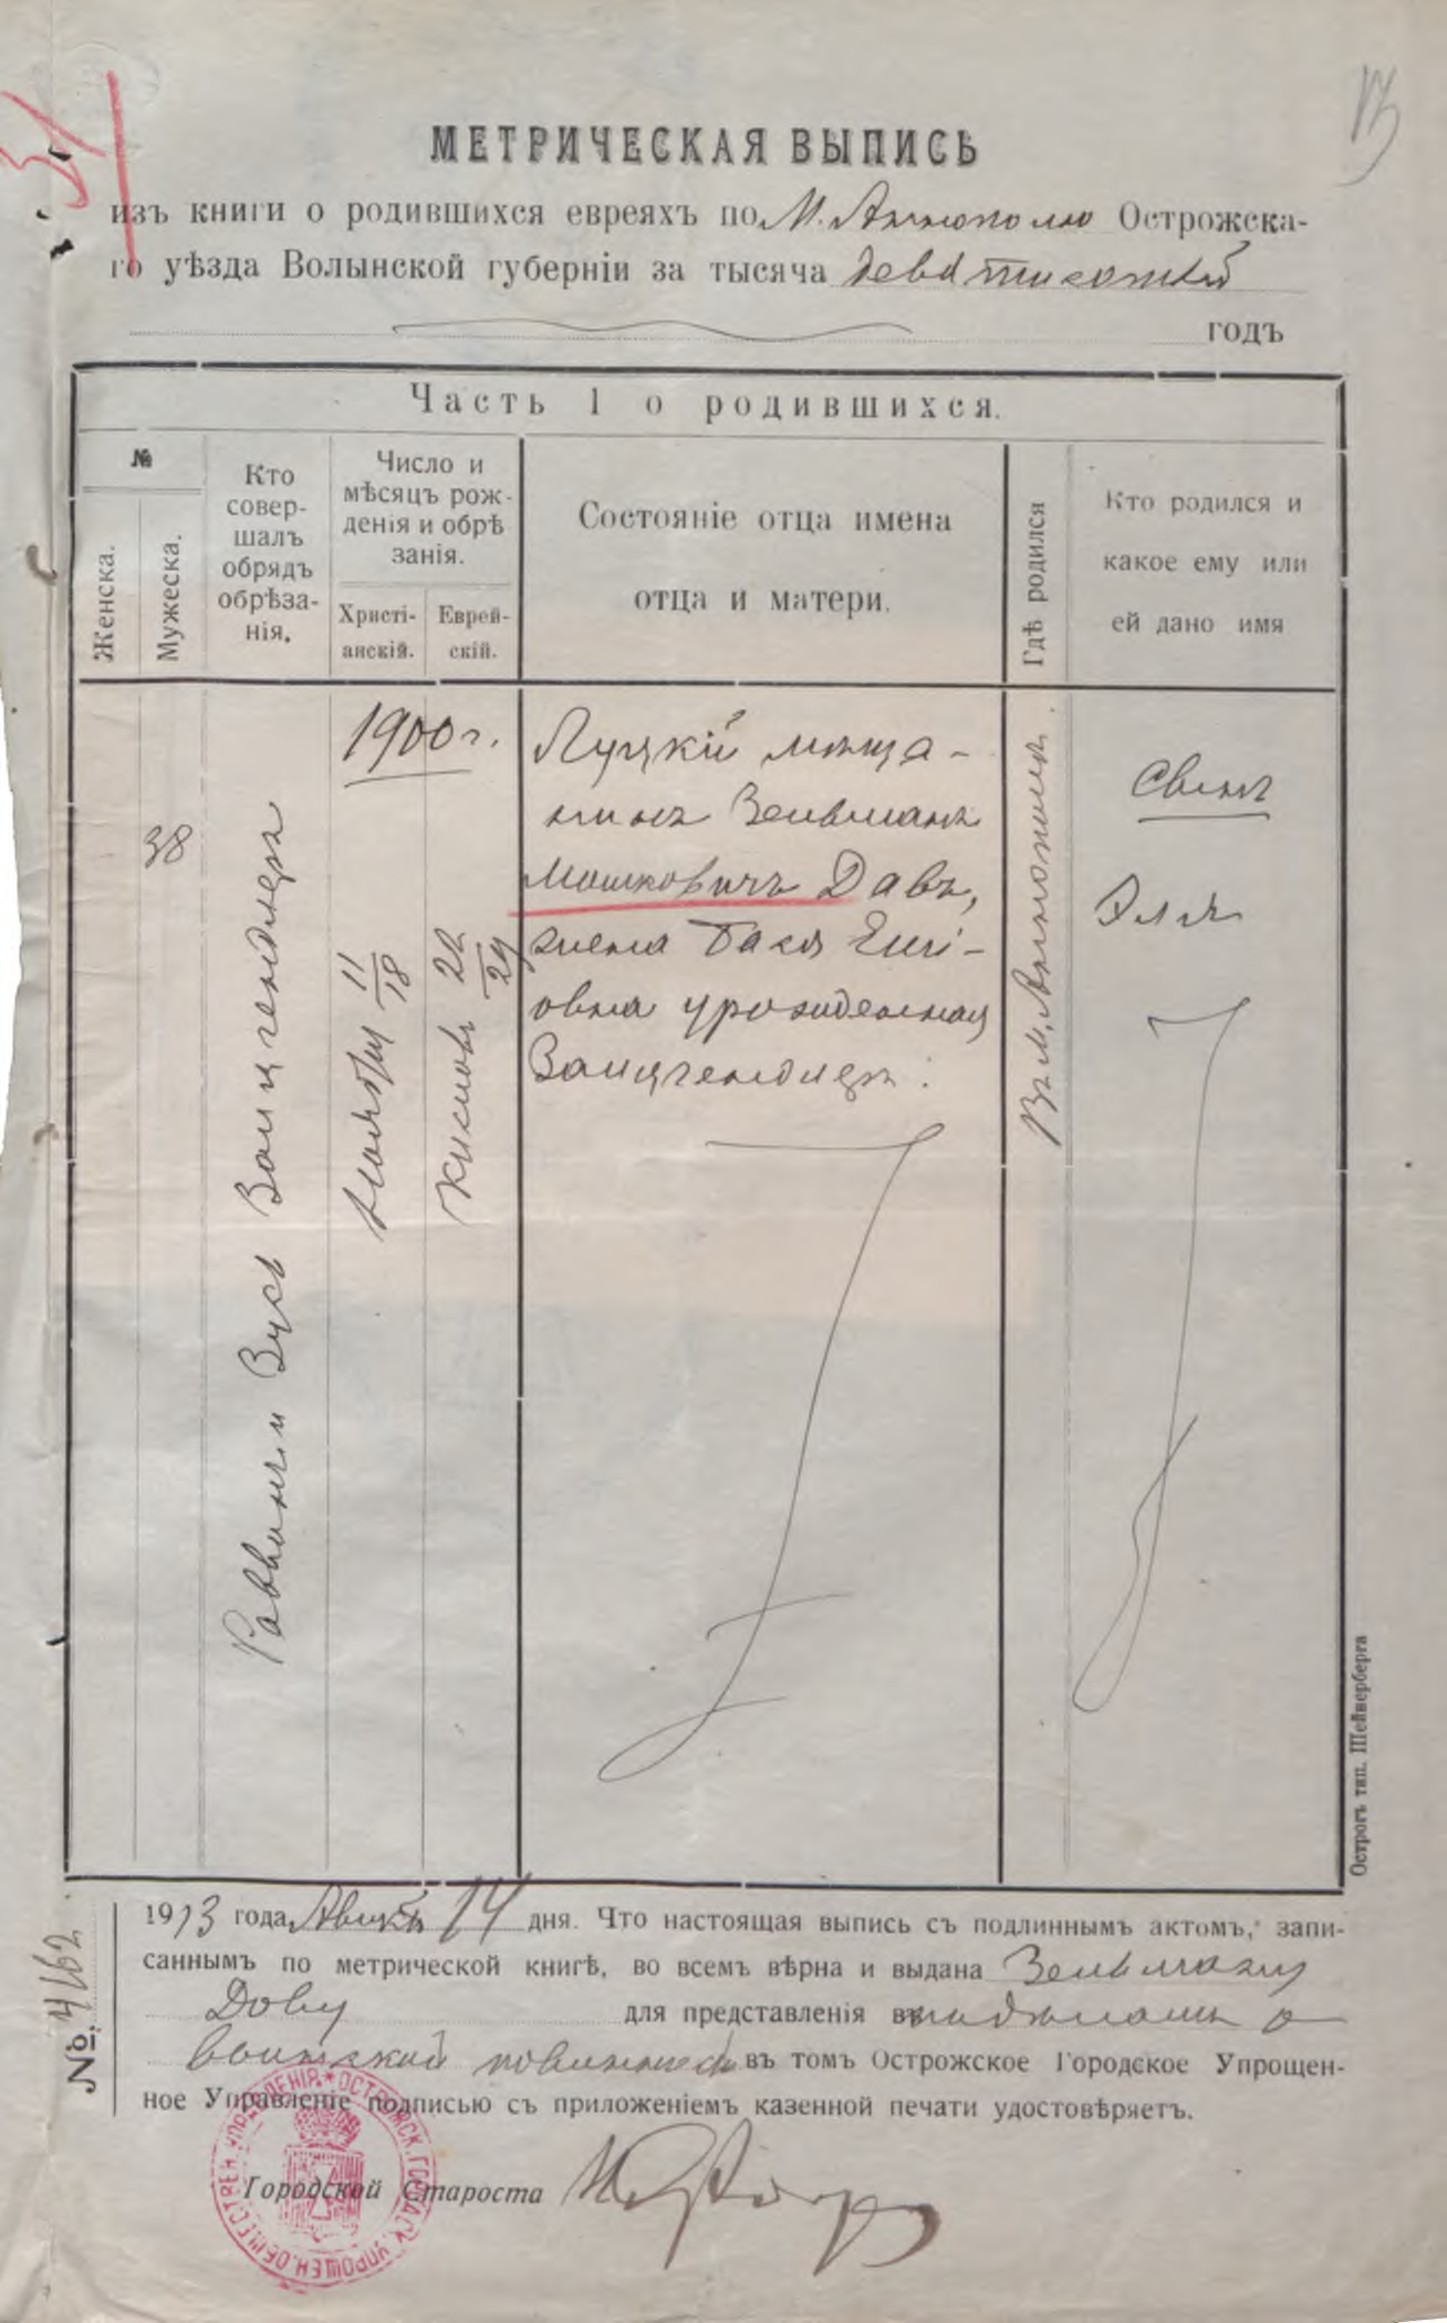 13
МЕТРИЧЕСКАЯ ВЫПИСЬ
изъ книги о родившихся евреяхъ по М. Аннополю Острожска-
го уѣзда Волынской губерніи за тысяча девятисотый
годъ
Часть 1 о родившихся.
№
Женска.
Мужеска.
Кто
совер-
шалъ
обрядъ
обрѣза-
нія.
Число и
мѣсяцъ рож-
денія и обрѣ
занія.
Христі-
анскій.
Еврей-
скій.
Состояніе отца имена
отца и матери.
Гдѣ родился
Кто родился и
какое ему или
ей дано имя
38
Раввинъ Вусь Вайцгендлеръ
1900 г.
Ноября 11/18
Кислевъ 22/29
Луцкій мѣща-
нинъ Зельманъ
Мошковичъ Довъ,
жена Бася Еин-
овна урожденная
Вайцгендлеръ.
Въ м. Аннополѣ.
Сынъ
Эля
№ 4162
1913 года Августа 14 дня. Что настоящая выпись съ подлиннымъ актомъ, запи-
саннымъ по метрической книгѣ, во всемъ вѣрна и выдана Зельману
Дову для представленія о
воинской повинности въ томъ Острожское Городское Упрощен-
ное Управленіе подписью съ приложеніемъ казенной печати удостовѣряетъ.
Городской Староста
ОСТРОЖСК. ГОРОДСК. УПРОЩЕН. ОБЩЕСТВЕН. УПРАВЛЕНІЯ
Острогъ тип. Шейверберга